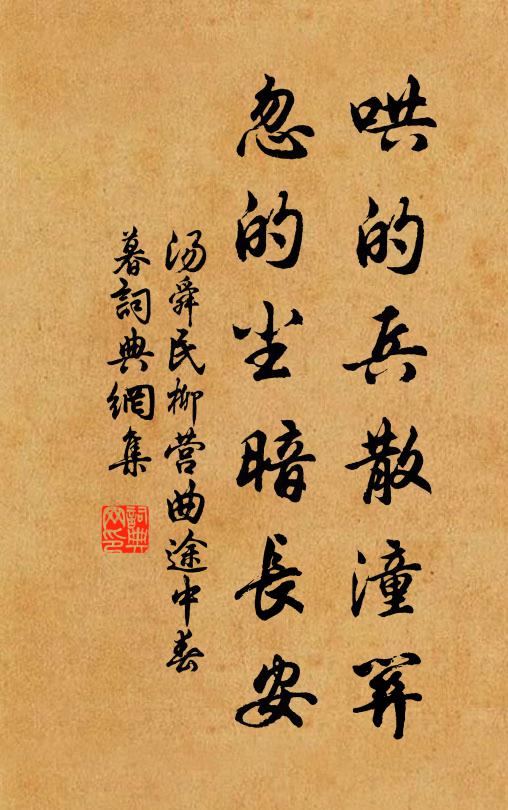 哄的兵散潼関
忽的尘暗長安
汤舜民柳营曲途中春
暮詞典網集
詞典
网印